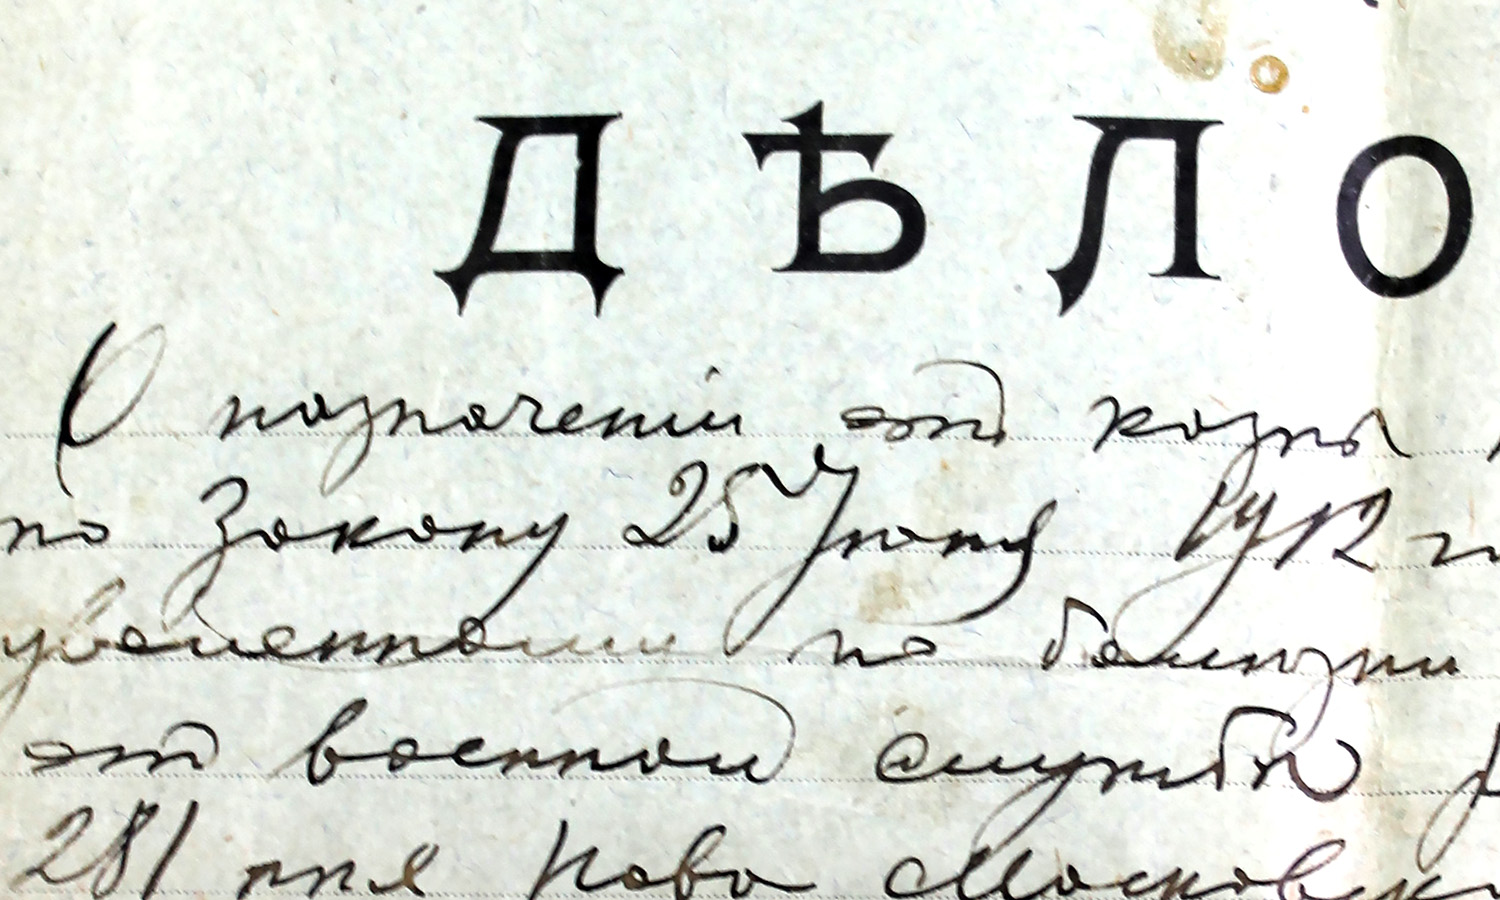 ДѢЛО
О назначеніи отъ казны
по Закону 25 Іюня 1912 г
уволенному по болѣзни
отъ военной службы
281 пѣх Ново Московск